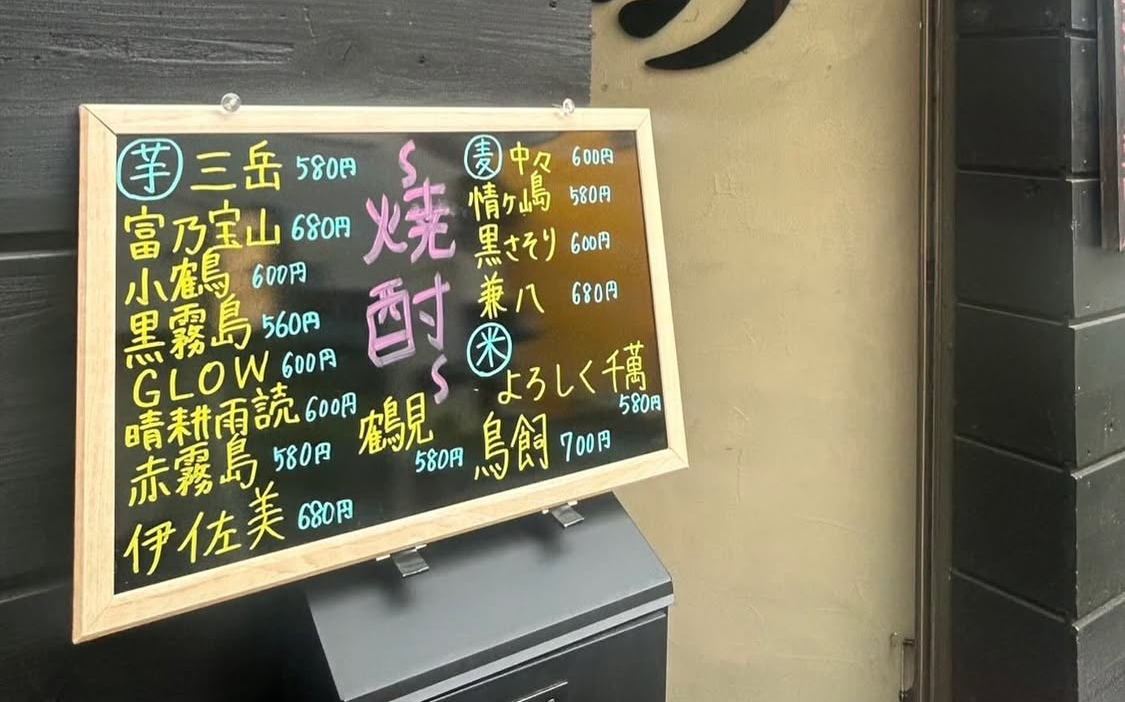 ～焼酎～
芋 三岳 580円
富乃宝山 680円
小鶴 600円
黒霧島 560円
GLOW 600円
晴耕雨読 600円
赤霧島 580円
伊佐美 680円
鶴見 580円
麦 中々 600円
情ヶ嶋 580円
黒さそり 600円
兼八 680円
米
よろしく千萬 580円
鳥飼 700円